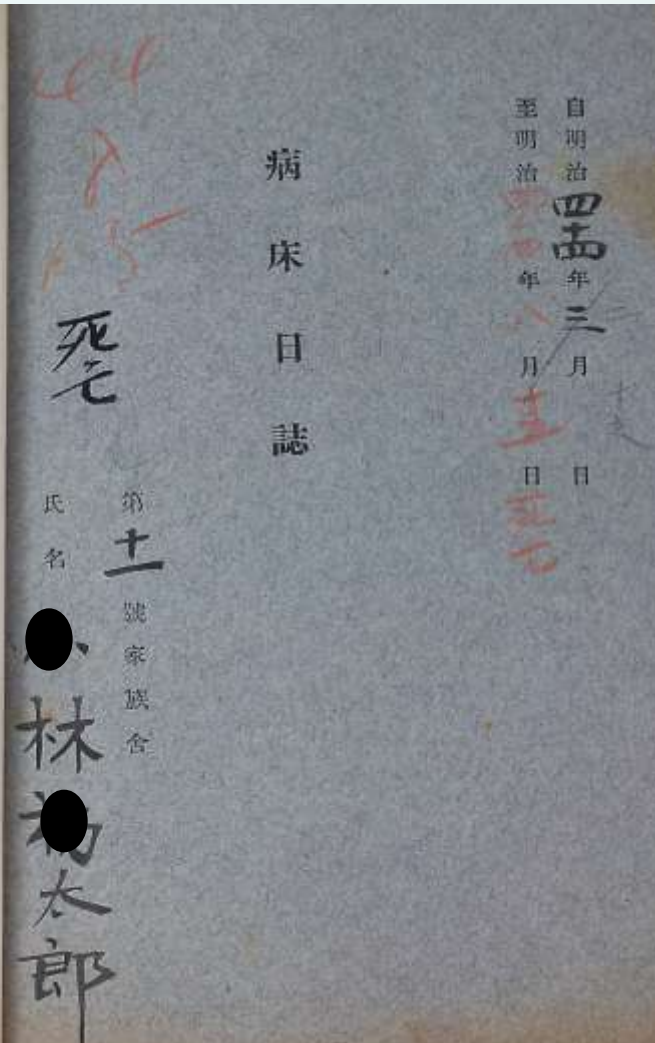 自明治四十四年三月 日
至明治四十四年八月十五日死亡
病床日誌
第十一號家族舍
氏名 林 太郎
死亡